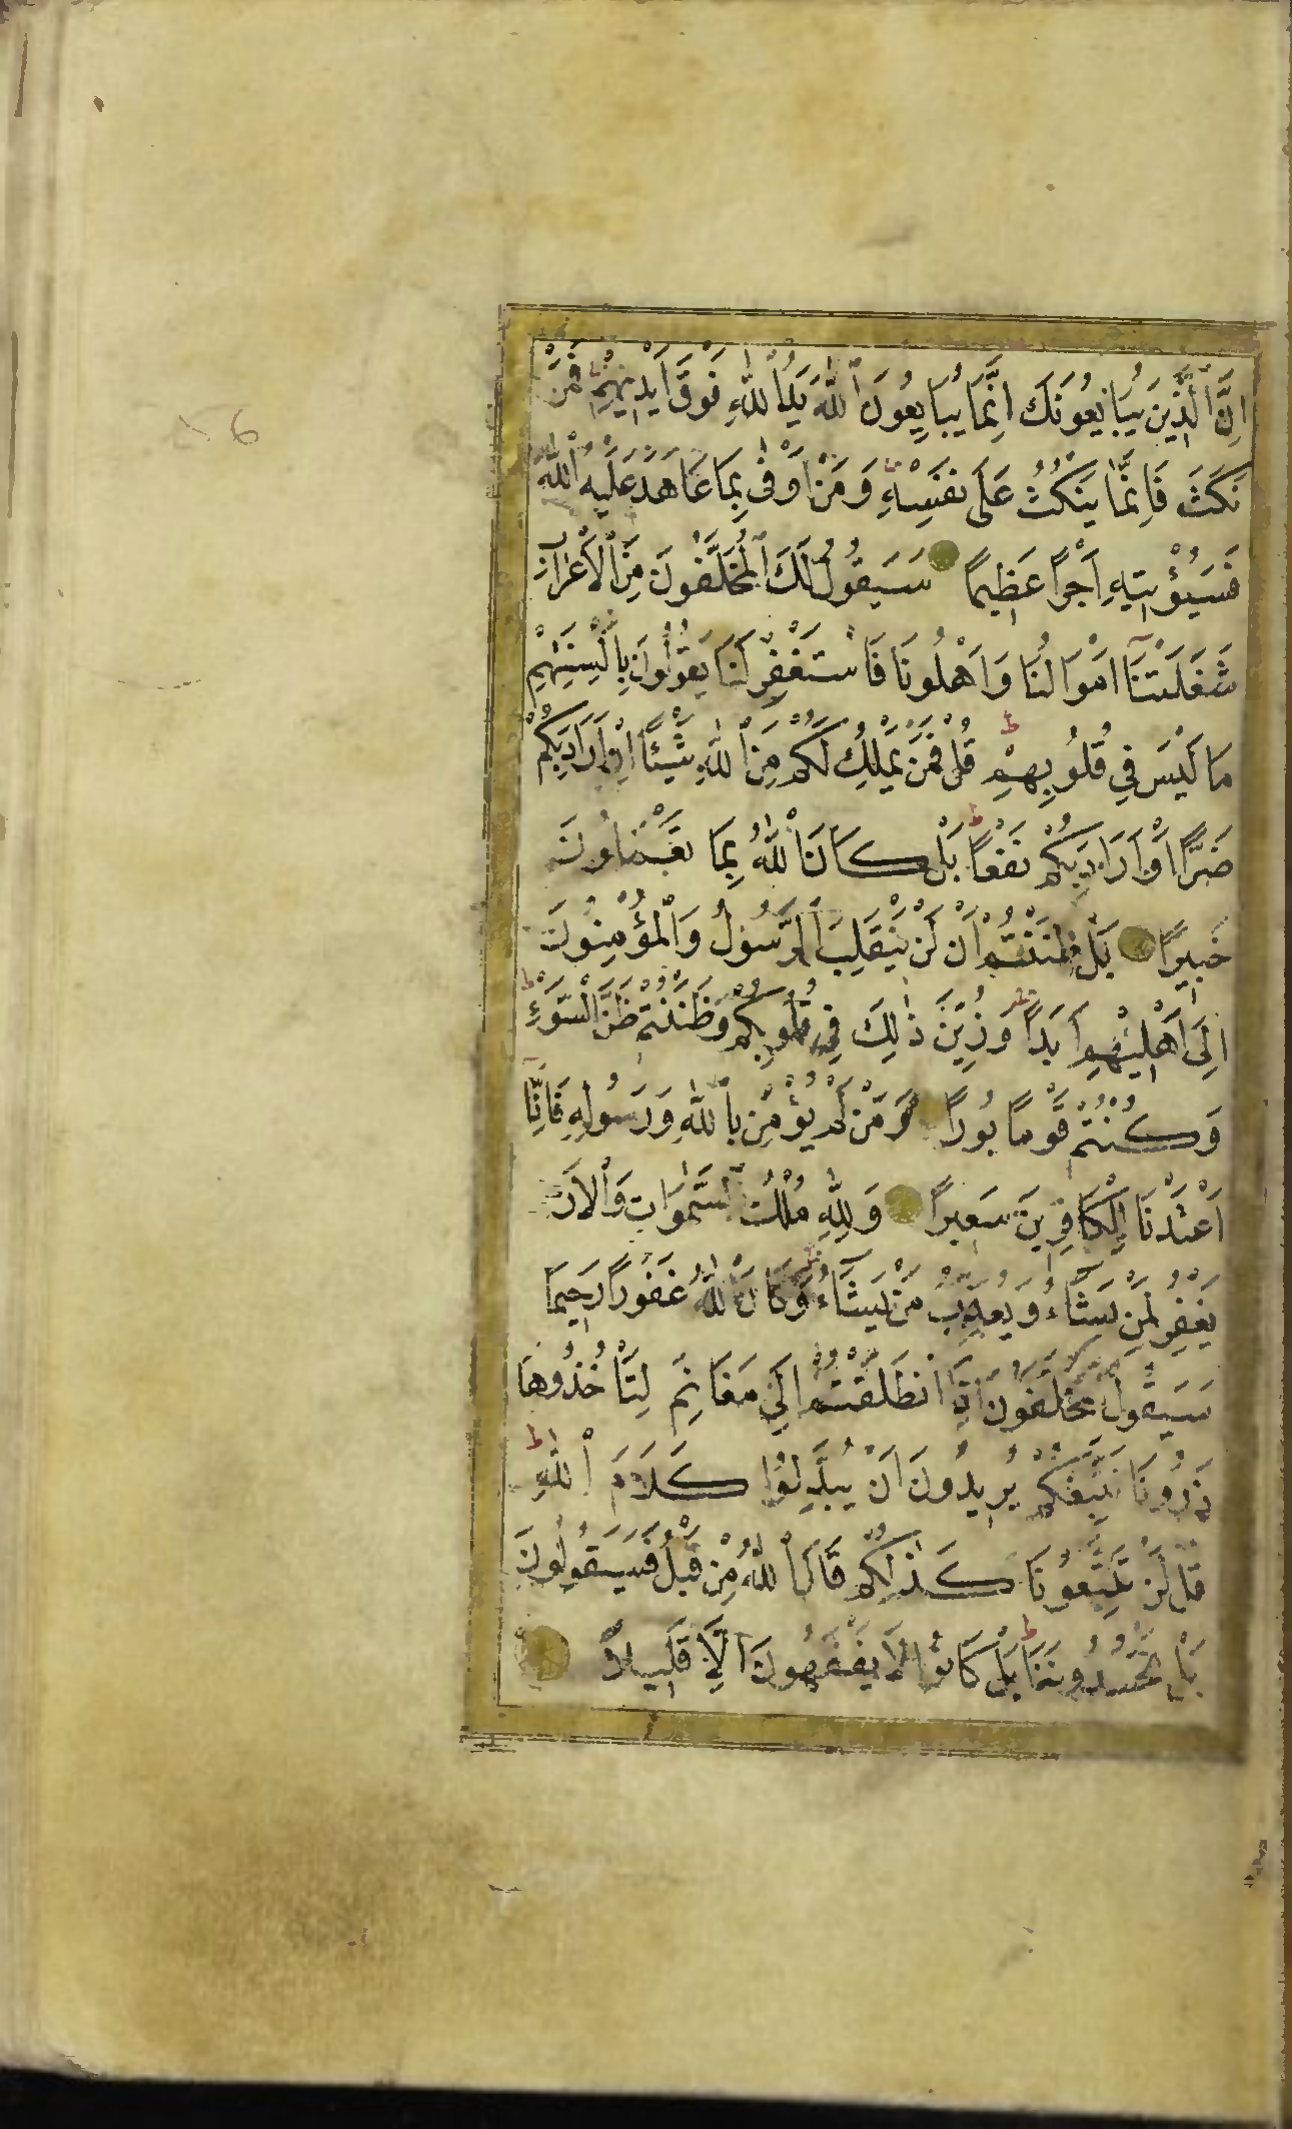 اِنَّ الَّذِينَ يُبَايِعُونَكَ اِنَّمَا يُبَايِعُونَ اللّٰهَ يَدُ اللّٰهِ فَوْقَ اَيْدِيهِمْ فَمَنْ
نَكَثَ فَاِنَّمَا يَنْكُثُ عَلٰى نَفْسِهِ وَمَنْ اَوْفٰى بِمَا عَاهَدَ عَلَيْهُ اللّٰهَ
فَسَيُؤْتِيهِ اَجْرًا عَظِيمًا سَيَقُولُ لَكَ الْمُخَلَّفُونَ مِنَ الْاَعْرَابِ
شَغَلَتْنَا اَمْوَالُنَا وَاَهْلُونَا فَاسْتَغْفِرْ لَنَا يَقُولُونَ بِاَلْسِنَتِهِمْ
مَا لَيْسَ فِي قُلُوبِهِمْ قُلْ فَمَنْ يَمْلِكُ لَكُمْ مِنَ اللّٰهِ شَيْئًا اِنْ اَرَادَ بِكُمْ
ضَرًّا اَوْ اَرَادَ بِكُمْ نَفْعًا بَلْ كَانَ اللّٰهُ بِمَا تَعْمَلُونَ
خَبِيرًا بَلْ ظَنَنْتُمْ اَنْ لَنْ يَنْقَلِبَ الرَّسُولُ وَالْمُؤْمِنُونَ
اِلٰى اَهْلِيهِمْ اَبَدًا وَزُيِّنَ ذٰلِكَ فِي قُلُوبِكُمْ وَظَنَنْتُمْ ظَنَّ السَّوْءِ
وَكُنْتُمْ قَوْمًا بُورًا وَمَنْ لَمْ يُؤْمِنْ بِاللّٰهِ وَرَسُولِهِ فَاِنَّا
اَعْتَدْنَا لِلْكَافِرِينَ سَعِيرًا وَلِلّٰهِ مُلْكُ السَّمٰوَاتِ وَالْاَرْضِ
يَغْفِرُ لِمَنْ يَشَاءُ وَيُعَذِّبُ مَنْ يَشَاءُ وَكَانَ اللّٰهُ غَفُورًا رَحِيمًا
سَيَقُولُ الْمُخَلَّفُونَ اِذَا انْطَلَقْتُمْ اِلٰى مَغَانِمَ لِتَأْخُذُوهَا
ذَرُونَا نَتَّبِعْكُمْ يُرِيدُونَ اَنْ يُبَدِّلُوا كَلَامَ اللّٰهِ
قُلْ لَنْ تَتَّبِعُونَا كَذٰلِكُمْ قَالَ اللّٰهُ مِنْ قَبْلُ فَسَيَقُولُونَ
بَلْ تَحْسُدُونَنَا بَلْ كَانُوا لَا يَفْقَهُونَ اِلَّا قَلِيلًا